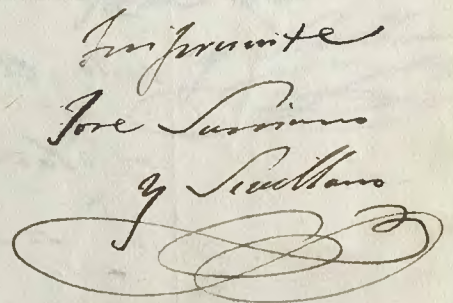 Imprimite
Jose Surriano
y Sevillano